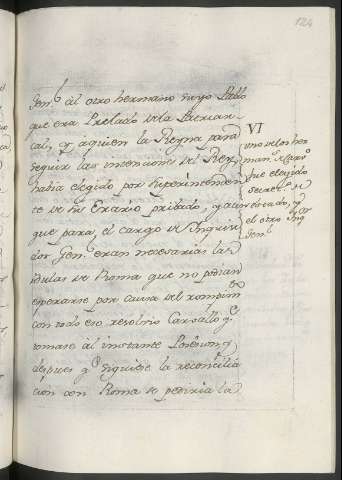 124
Gen.l al otro hermano suyo Pablo
que era Prelado dela Patriar-
cal, y aquien la Reyna para
seguir las intenciones del Rey,
havia elegido por
te de su Erario privado, y aun
que para el cargo de Inquisi
dor Gen.l eran necesarias las
Bulas de Roma que no podian
esperarse por causa del rompim.to
con todo eso resolvio Carvallo q.e
tomase al instante Posesion, y
despues q.e siguiese la reconcilia
cion con Roma se pediria la
VI
uno de los her
man.s
fue elegido
secret.o
privado, y
el otro Inq.or
Gen.l